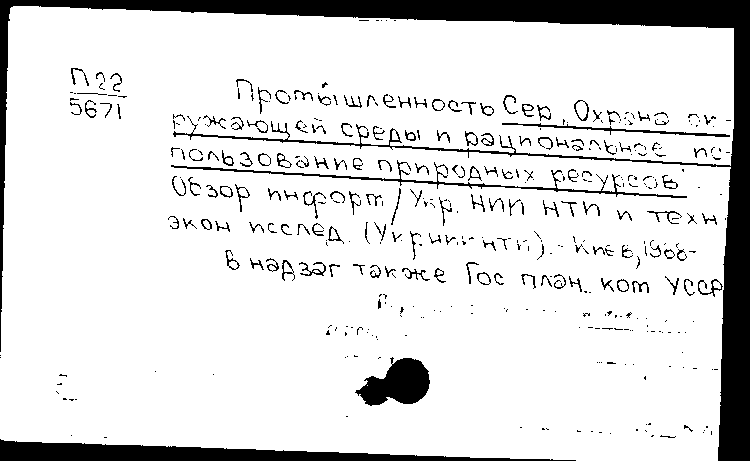 П22
5671
Промышленность Сер. „Охрана ок-
ружающей среды и рациональное ис-
пользование природных ресурсов"
Обзор информ / Укр. НИИ НТИ и техн
экон исслед. (УкрНИИНТИ). - Киев, 1988-
В надзаг также Гос план. ком УССР